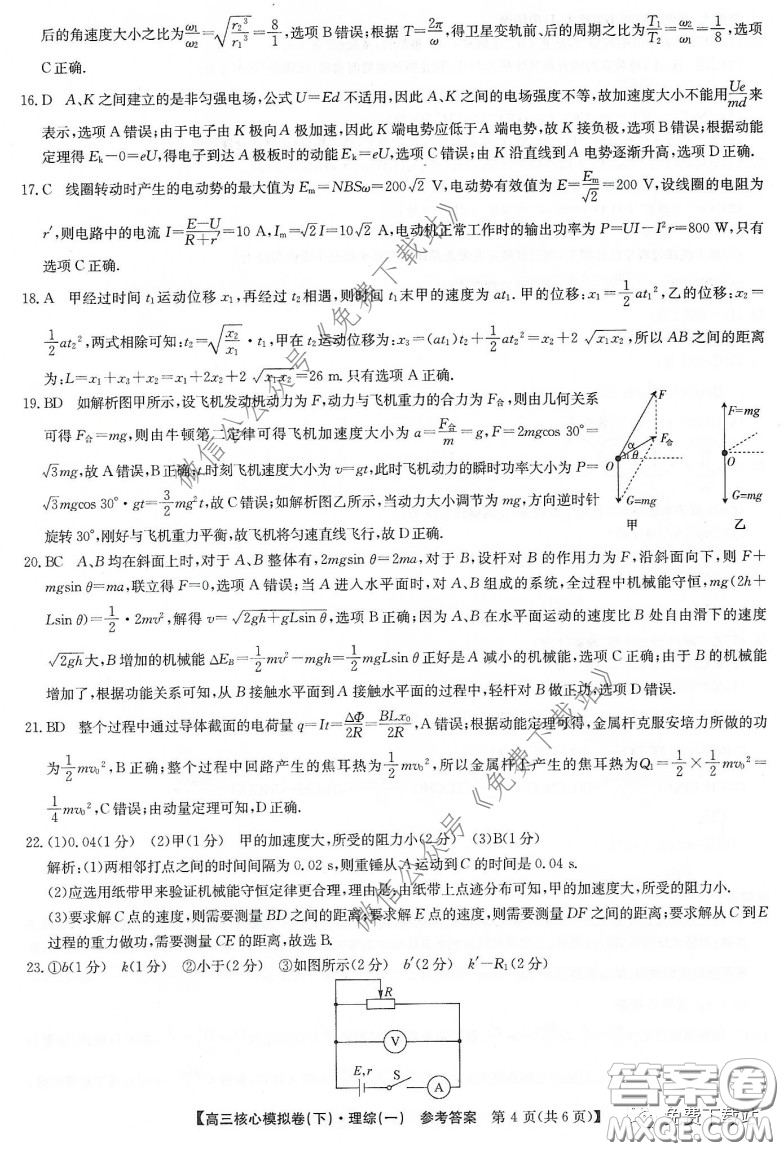 后的角速度大小之比为ω₁/ω₂=√(r₂³/r₁³)=8/1,选项B错误;根据T=2π/ω,得卫星变轨前、后的周期之比为T₁/T₂=ω₂/ω₁=1/8,选项
C正确.
16. D A、K之间建立的是非匀强电场,公式U=Ed不适用,因此A、K之间的电场强度不等,故加速度大小不能用Ue/md来
表示,选项A错误;由于电子由K极向A极加速,因此K端电势应低于A端电势,故K接负极,选项B错误;根据动能
定理得Eₖ-0=eU,得电子到达A极板时的动能Eₖ=eU,选项C错误;由K沿直线到A电势逐渐升高,选项D正确.
17. C 线圈转动时产生的电动势的最大值为Eₘ=NBSω=200√2 V,电动势有效值为E=Eₘ/√2=200 V,设线圈的电阻为
r′,则电路中的电流I=(E-U)/(R+r′)=10 A,Iₘ=√2I=10√2 A,电动机正常工作时的输出功率为P=UI-I²r=800 W,只有
选项C正确.
18. A 甲经过时间t₁运动位移x₁,再经过t₂相遇,则时间t₁末甲的速度为at₁.甲的位移:x₁=1/2at₁²,乙的位移:x₂=
1/2at₂²,两式相除可知:t₂=√(x₂/x₁)·t₁,甲在t₂运动位移为:x₃=(at₁)t₂+1/2at₂²=x₂+2√(x₁x₂),所以AB之间的距离
为:L=x₁+x₃+x₂=x₁+2x₂+2√(x₁x₂)=26 m.只有选项A正确.
19. BD 如解析图甲所示,设飞机发动机动力为F,动力与飞机重力的合力为F合,则由几何关系
可得F合=mg,则由牛顿第二定律可得飞机加速度大小为a=F合/m=g,F=2mgcos 30°=
√3mg,故A错误,B正确;t时刻飞机速度大小为v=gt,此时飞机动力的瞬时功率大小为P=
√3mgcos 30°·gt=3/2mg²t,故C错误;如解析图乙所示,当动力大小调节为mg,方向逆时针
旋转30°,刚好与飞机重力平衡,故飞机将匀速直线飞行,故D正确.
F
F合
α
30°
O
G=mg
甲
F=mg
O
G=mg
乙
20. BC A、B均在斜面上时,对于A、B整体有,2mgsin θ=2ma,对于B,设杆对B的作用力为F,沿斜面向下,则F+
mgsin θ=ma,联立得F=0,选项A错误;当A进入水平面时,对A、B组成的系统,全过程中机械能守恒,mg(2h+
Lsin θ)=1/2·2mv²,解得v=√(2gh+gLsin θ),选项B正确;因为A、B在水平面运动的速度比B处自由滑下的速度
√(2gh)大,B增加的机械能ΔE_B=1/2mv²-mgh=1/2mgLsin θ正好是A减小的机械能,选项C正确;由于B的机械能
增加了,根据功能关系可知,从B接触水平面到A接触水平面的过程中,轻杆对B做正功,选项D错误.
21. BD 整个过程中通过导体截面的电荷量q=It=ΔΦ/2R=BLx₀/2R,A错误;根据动能定理可得,金属杆克服安培力所做的功
为1/2mv₀²,B正确;整个过程中回路产生的焦耳热为1/2mv₀²,所以金属杆上产生的焦耳热为Q₁=1/2×1/2mv₀²=
1/4mv₀²,C错误;由动量定理可知,D正确.
22. (1)0.04(1分) (2)甲(1分) 甲的加速度大,所受的阻力小(2分) (3)B(1分)
解析:(1)两相邻打点之间的时间间隔为0.02 s,则重锤从A运动到C的时间是0.04 s.
(2)应选用纸带甲来验证机械能守恒定律更合理,理由是,由纸带上点迹分布可知,甲的加速度大,所受的阻力小.
(3)要求解C点的速度,则需要测量BD之间的距离;要求解E点的速度,则需要测量DF之间的距离;要求解从C到E
过程的重力做功,需要测量CE的距离,故选B.
23. ①b(1分) k(1分) ②小于(2分) ③如图所示(2分) b′(2分) k′-R₁(2分)
R
V
E,r
S
A
【高三核心模拟卷(下)·理综(一) 参考答案 第4页(共6页)】
微信公众号《免费下载站》
微信公众号《免费下载站》
答案卷
免费下载站
MXQE.COM